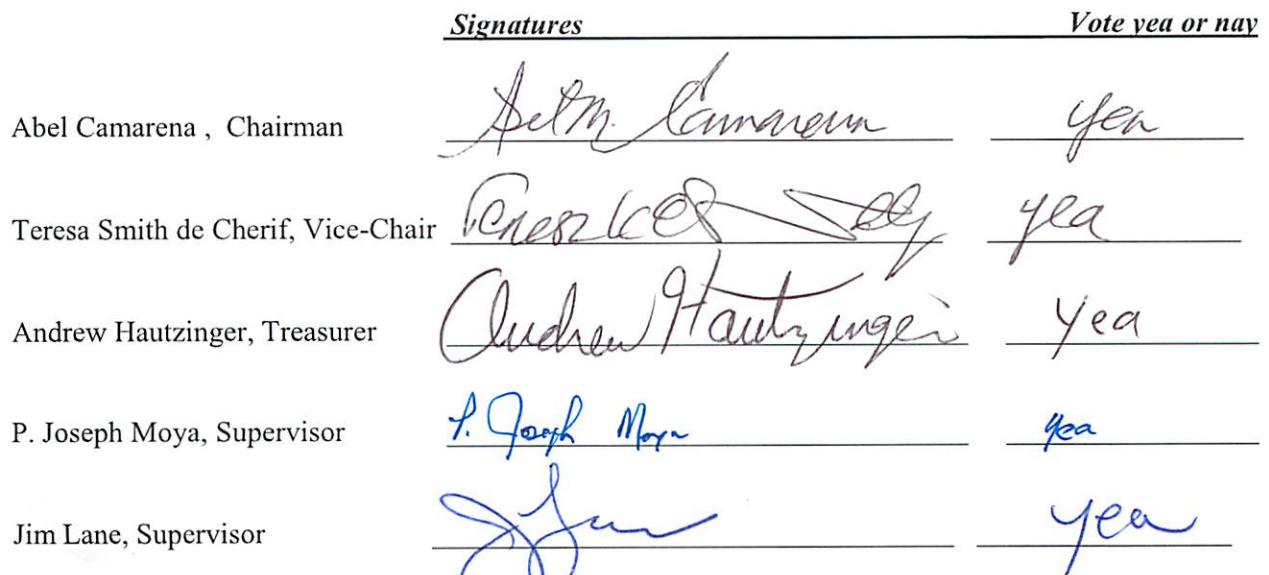 Signatures Vote yea or nay
Abel Camarena , Chairman Abel M. Camarena yea
Teresa Smith de Cherif, Vice-Chair yea
Andrew Hautzinger, Treasurer Andrew Hautzinger yea
P. Joseph Moya, Supervisor P. Joseph Moya yea
Jim Lane, Supervisor yea